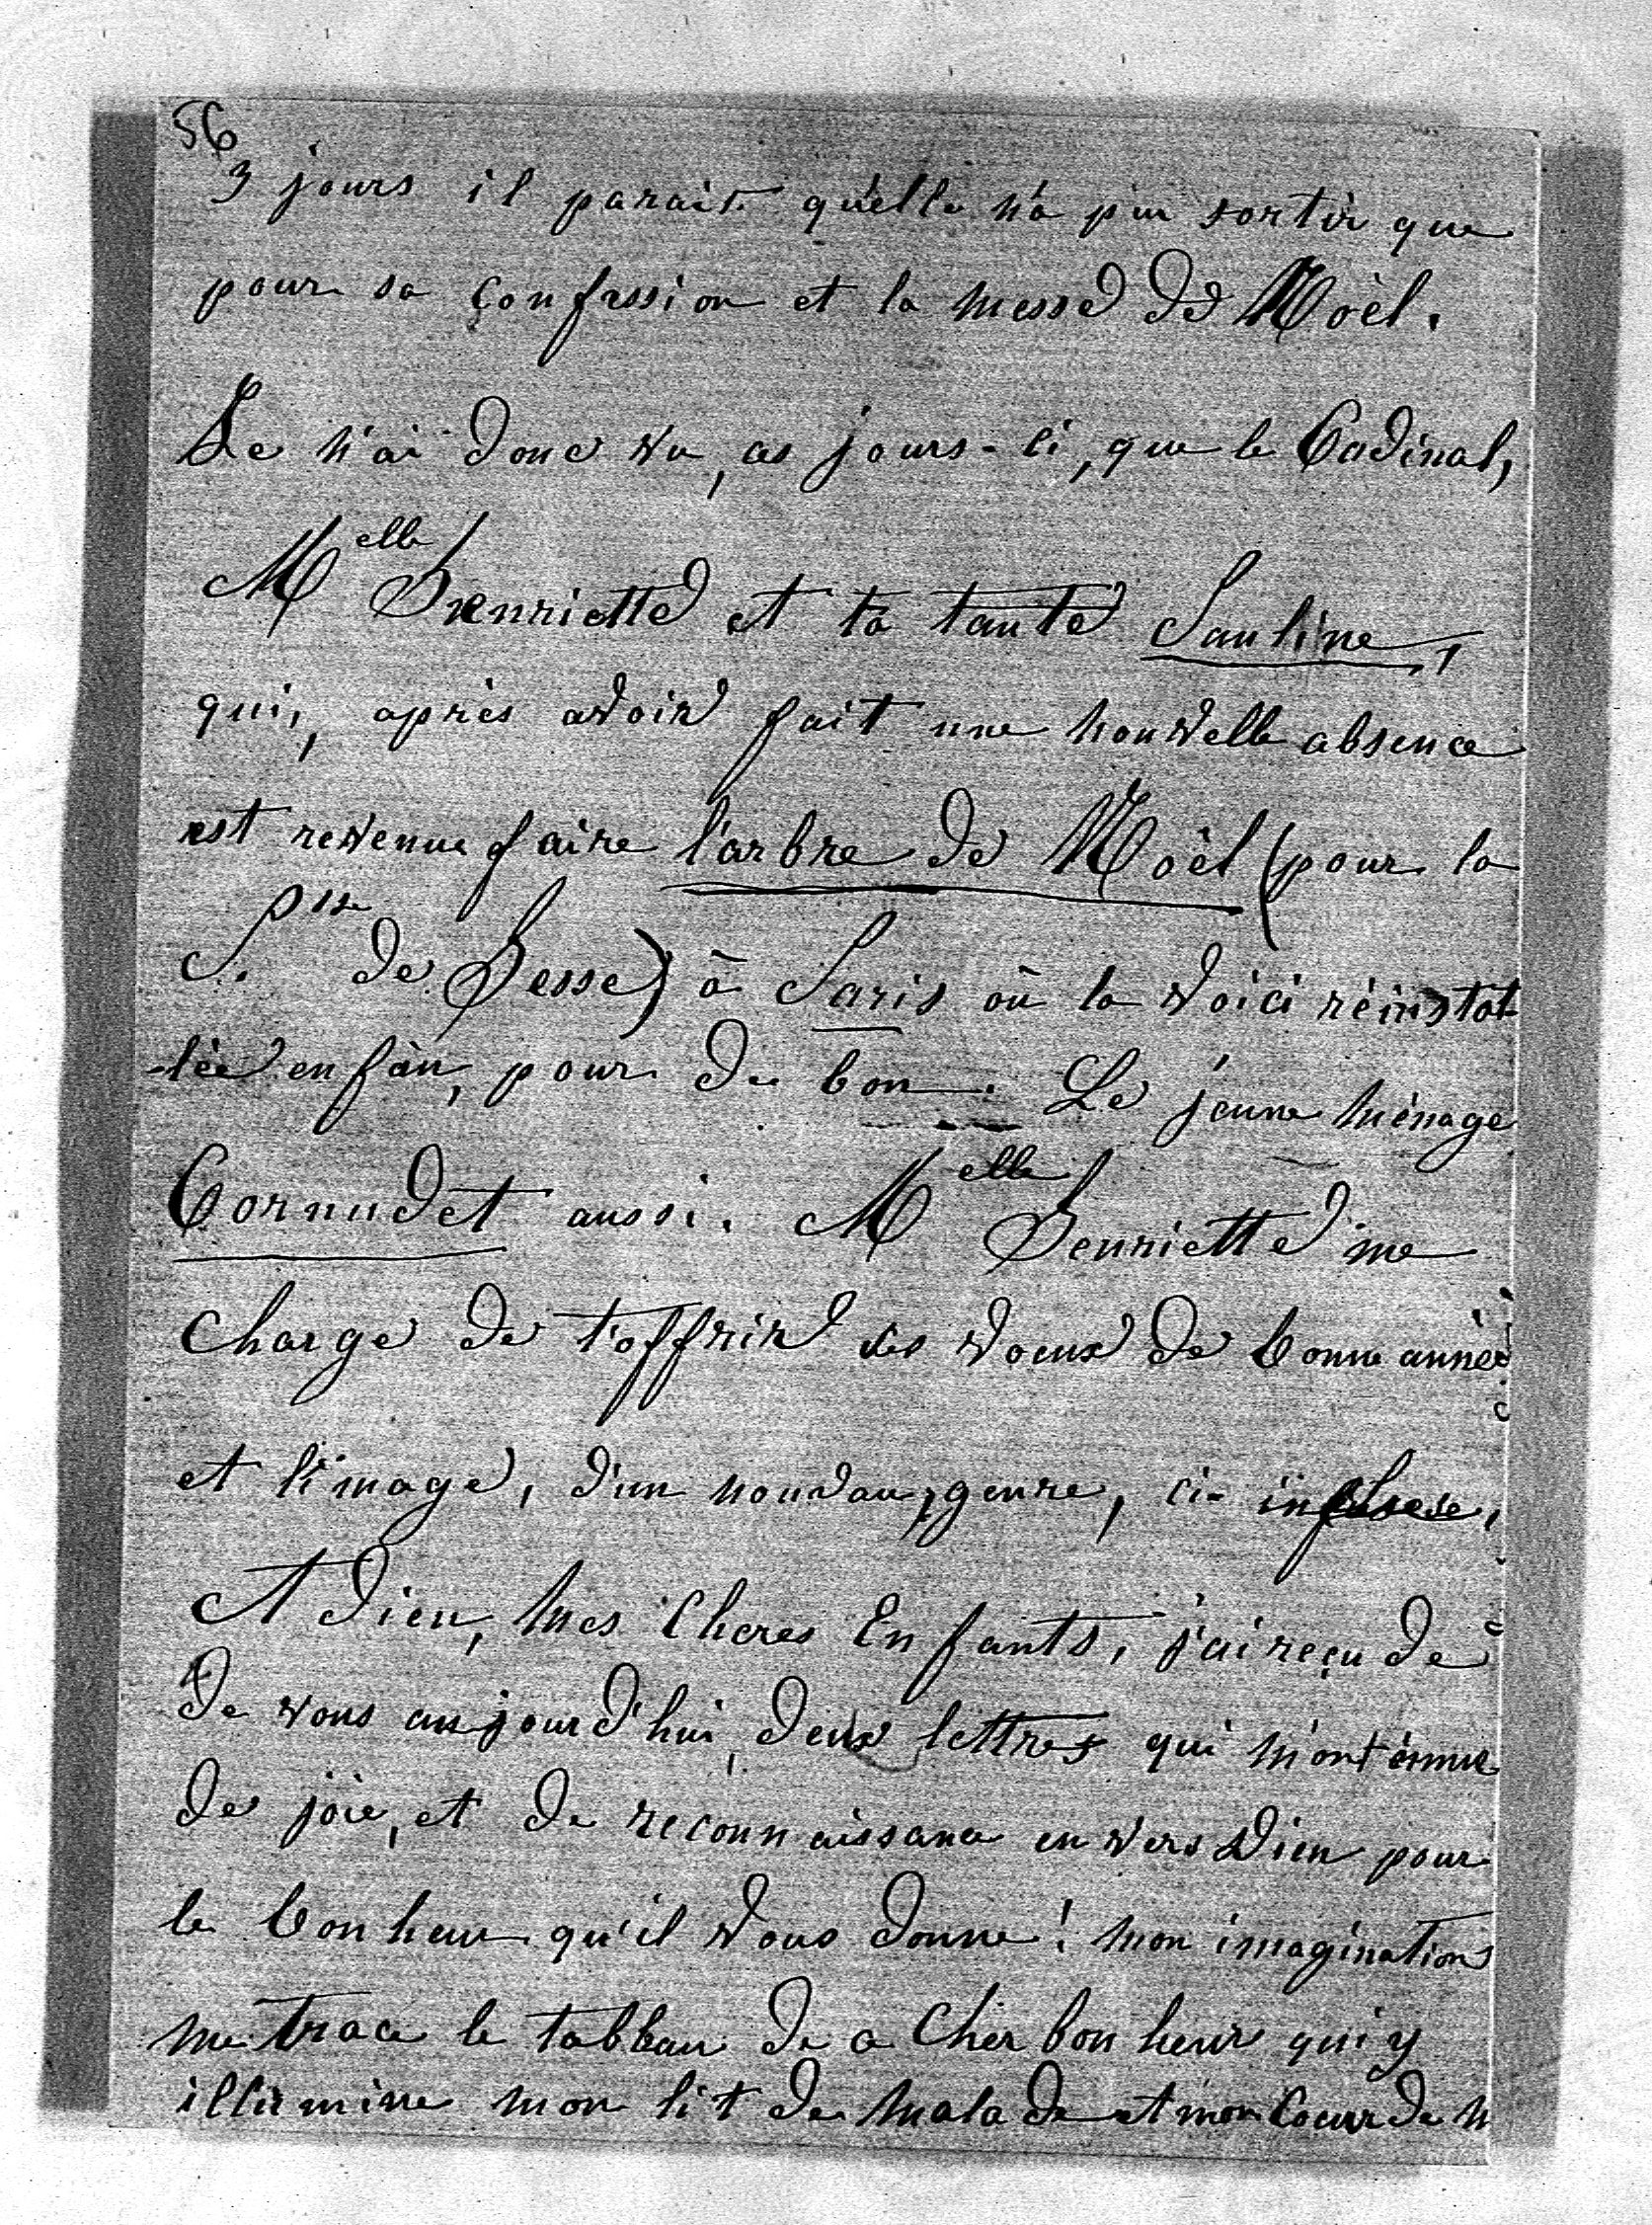 56
3 jours il parait qu'elle n'a pu sortir que
pour sa confession et la messe de Noël.
Je n'ai donc vu, ces jours-ci, que le Cadinal,
Melle Henriette et ta tante Pauline,
qui, après avoir fait une nouvelle absence
est revenue faire l'arbre de Noël (pour la
Psse de Hesse) à Paris où la voici réinstal-
-lée enfin, pour de bon. Le jeune ménage
Cornudet aussi. Melle Henriette me
charge de t'offrir ses voeux de bonne année
et l'image, d'un nouveau genre, ci-
A Dieu, mes Chères Enfants, j'ai reçu de
de vous aujourd'hui, deux lettres qui m'ont émue
de joie, et de reconnaissance envers Dieu pour
le bonheur qu'il vous donne! mon imagination
me trace le tableau de ce Cher bonheur qui y
illumine mon lit de malade et mon Coeur de